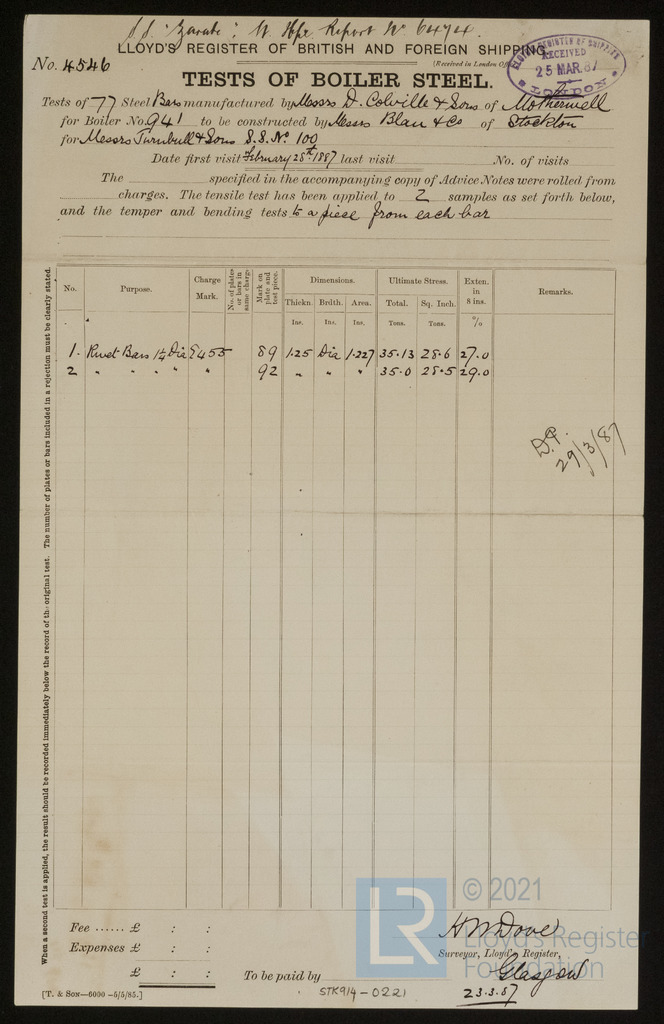 S.S. "Zarate". W. Hpl Report No 6474.
LLOYD'S REGISTER OF BRITISH AND FOREIGN SHIPPING.
No. 4546
(Received in London Office
LLOYD'S REGISTER OF SHIPPING
RECEIVED
25 MAR. 87
LONDON
TESTS OF BOILER STEEL.
Tests of 77 Steel Bars manufactured by Messrs D. Colville & Sons of Motherwell
for Boiler No. 941 to be constructed by Messrs Blair & Co of Stockton
for Messrs Turnbull & Sons S.S. No. 100
Date first visit February 28th 1887 last visit No. of visits
The specified in the accompanying copy of Advice Notes were rolled from
charges. The tensile test has been applied to 2 samples as set forth below,
and the temper and bending tests to a piece from each bar
When a second test is applied, the result should be recorded immediately below the record of the original test. The number of plates or bars included in a rejection must be clearly stated.
No. Purpose. Charge Mark. No. of plates or bars in same charge. Mark on plate and test piece. Dimensions. Ultimate Stress. Exten. in 8 ins. Remarks.
Thickn. Brdth. Area. Total. Sq. Inch.
Ins. Ins. Ins. Tons. Tons. %
1. Rivet Bars 1¼ Dia 5455 89 1.25 Dia 1.227 35.13 28.6 27.0
2 " " " " " 92 " " " 35.0 28.5 29.0
D.P.
29/3/87
Fee ...... £ : :
Expenses £ : :
£ : :
To be paid by
H W Dove
Surveyor, Lloyd's Register,
Glasgow
23.3.87
[T. & Son—6000 –5/5/85.]
STK914-0221
LR
© 2021
Lloyd's Register
Foundation